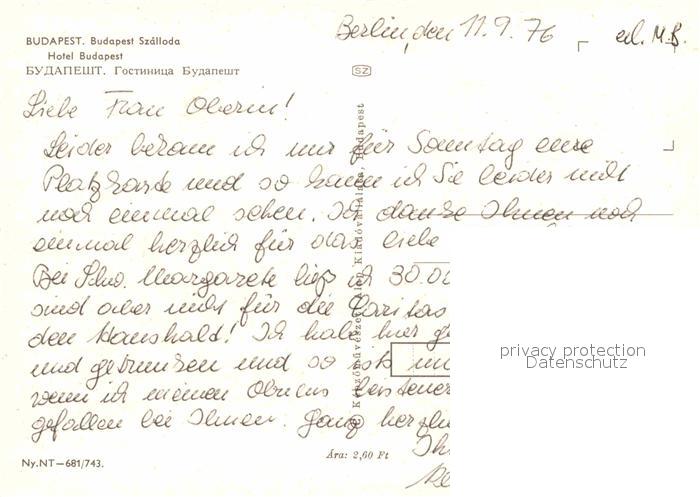 Berlin, den 11.9.76
erl. M.B.
BUDAPEST. Budapest Szálloda
Hotel Budapest
БУДАПЕШТ. Гостиница Будапешт
SZ
Liebe Frau Oberin!
Leider bekam ich nur für Sonntag eine
Platzkarte und so kann ich Sie leider nicht
noch einmal sehen. Ich danke Ihnen noch
einmal herzlich für das liebe
Bei Schw. Margarete ließ ich 30.00
sind aber nicht für die Caritas
den Haushalt! Ich habe hier
und getrunken und so
wenn ich meinen Obulus
gefallen bei Ihnen. Ganz herzlich
Képzőművészeti Alap Kiadóvállalata, Budapest
privacy protection
Datenschutz
Ny.NT—681/743.
Ára: 2,60 Ft